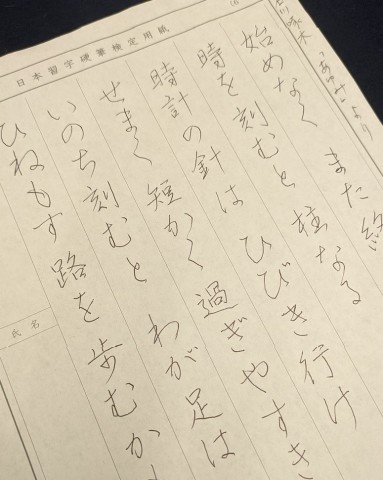 日本習字硬筆検定用紙
石川啄木 「あゆみ」より
始めなく また終
時を刻むと 柱なる
時計の針は ひびき行け
せまく 短かく 過ぎやすき
いのち刻むと わが足は
ひねもす 路を 歩むか
氏名